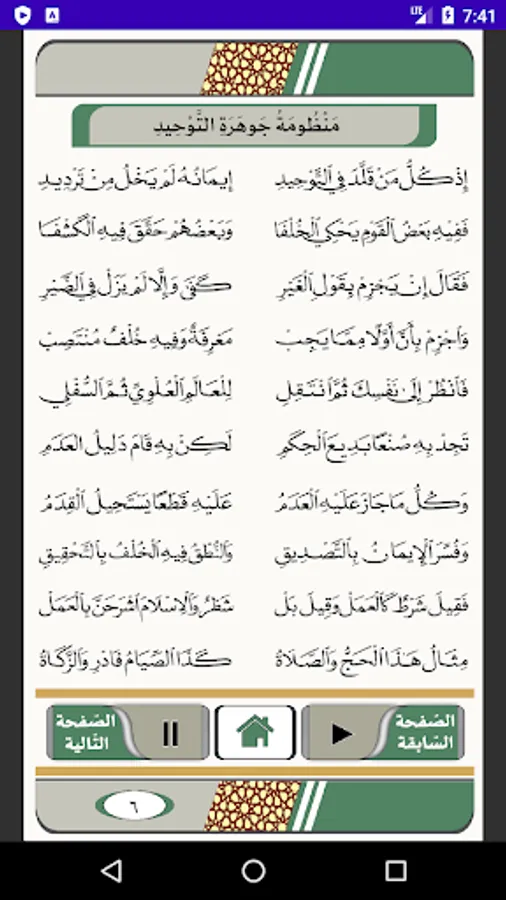 7:41
LTE
A
مَنْظُومَةُ جَوهَرَةِ التَّوْحِيدِ
إِذْ كُلُّ مَنْ قَلَّدَ فِي التَّوْحِيدِ إِيمَانُهُ لَمْ يَخْلُ مِنْ تَرْدِيدِ
فَفِيهِ بَعْضُ الْقَوْمِ يَحْكِي الْخُلْفَا وَبَعْضُهُمْ حَقَّقَ فِيهِ الْكَشْفَا
فَقَالَ إِنْ يَجْزِمْ بِقَوْلِ الْغَيْرِ كَفَى وَإِلَّا لَمْ يَزَلْ فِي الضَّيْرِ
وَاجْزِمْ بِأَنَّ أَوَّلًا مِمَّا يَجِبْ مَعْرِفَةٌ وَفِيهِ خُلْفٌ مُنْتَصِبْ
فَانْظُرْ إِلَى نَفْسِكَ ثُمَّ انْتَقِلِ لِلْعَالَمِ الْعُلْوِيِّ ثُمَّ السُّفْلِي
تَجِدْ بِهِ صُنْعًا بَدِيعَ الْحِكَمِ لَكِنْ بِهِ قَامَ دَلِيلُ الْعَدَمِ
وَكُلُّ مَا جَازَ عَلَيْهِ الْعَدَمُ عَلَيْهِ قَطْعًا يَسْتَحِيلُ الْقِدَمُ
وَفُسِّرَ الْإِيمَانُ بِالتَّصْدِيقِ وَالنُّطْقُ فِيهِ الْخُلْفُ بِالتَّحْقِيقِ
فَقِيلَ شَرْطٌ كَالْعَمَلْ وَقِيلَ بَلْ شَطْرٌ وَالْإِسْلَامَ اشْرَحَنَّ بِالْعَمَلْ
مِثَالُ هَذَا الْحَجُّ وَالصَّلَاةُ كَذَا الصِّيَامُ فَادْرِ وَالزَّكَاةُ
الصّفحة السّابقة
الصّفحة التّالية
٦